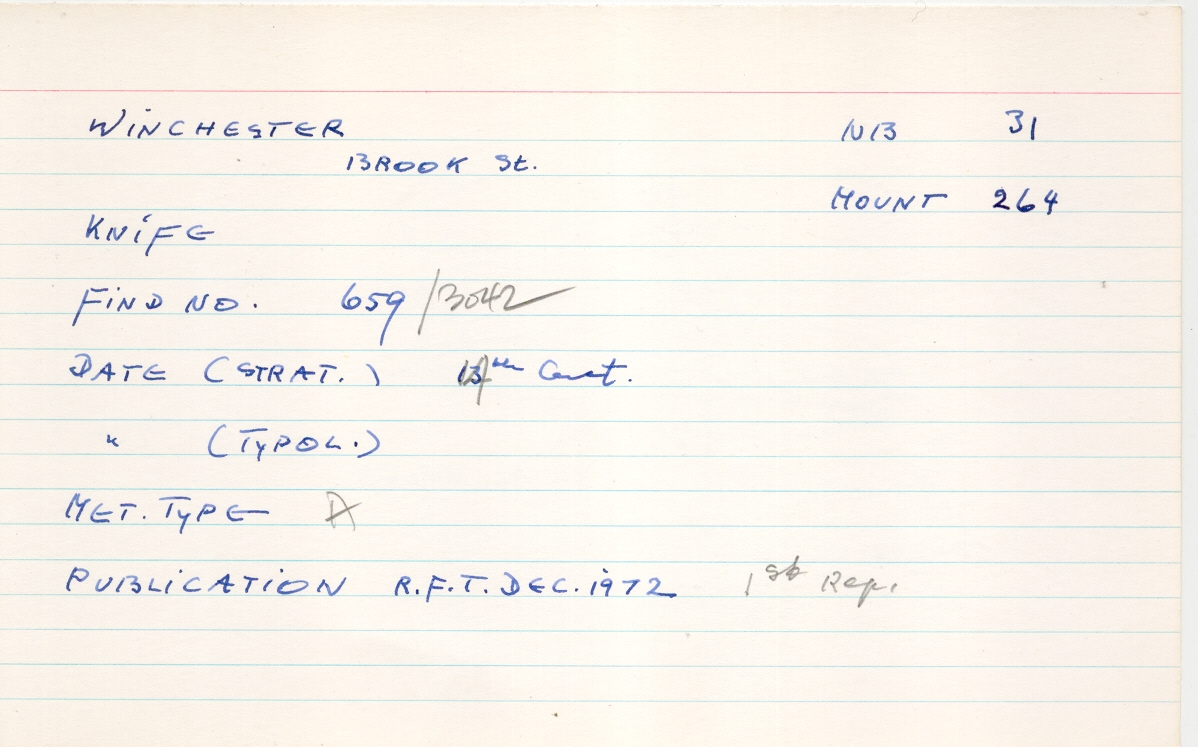 WINCHESTER NB 31
BROOK St.
MOUNT 264
KNIFE
FIND NO. 659/3042
DATE (STRAT.) th Cent.
" (TYPOL.)
MET. TYPE A
PUBLICATION R.F.T. DEC. 1972 1st Rep.